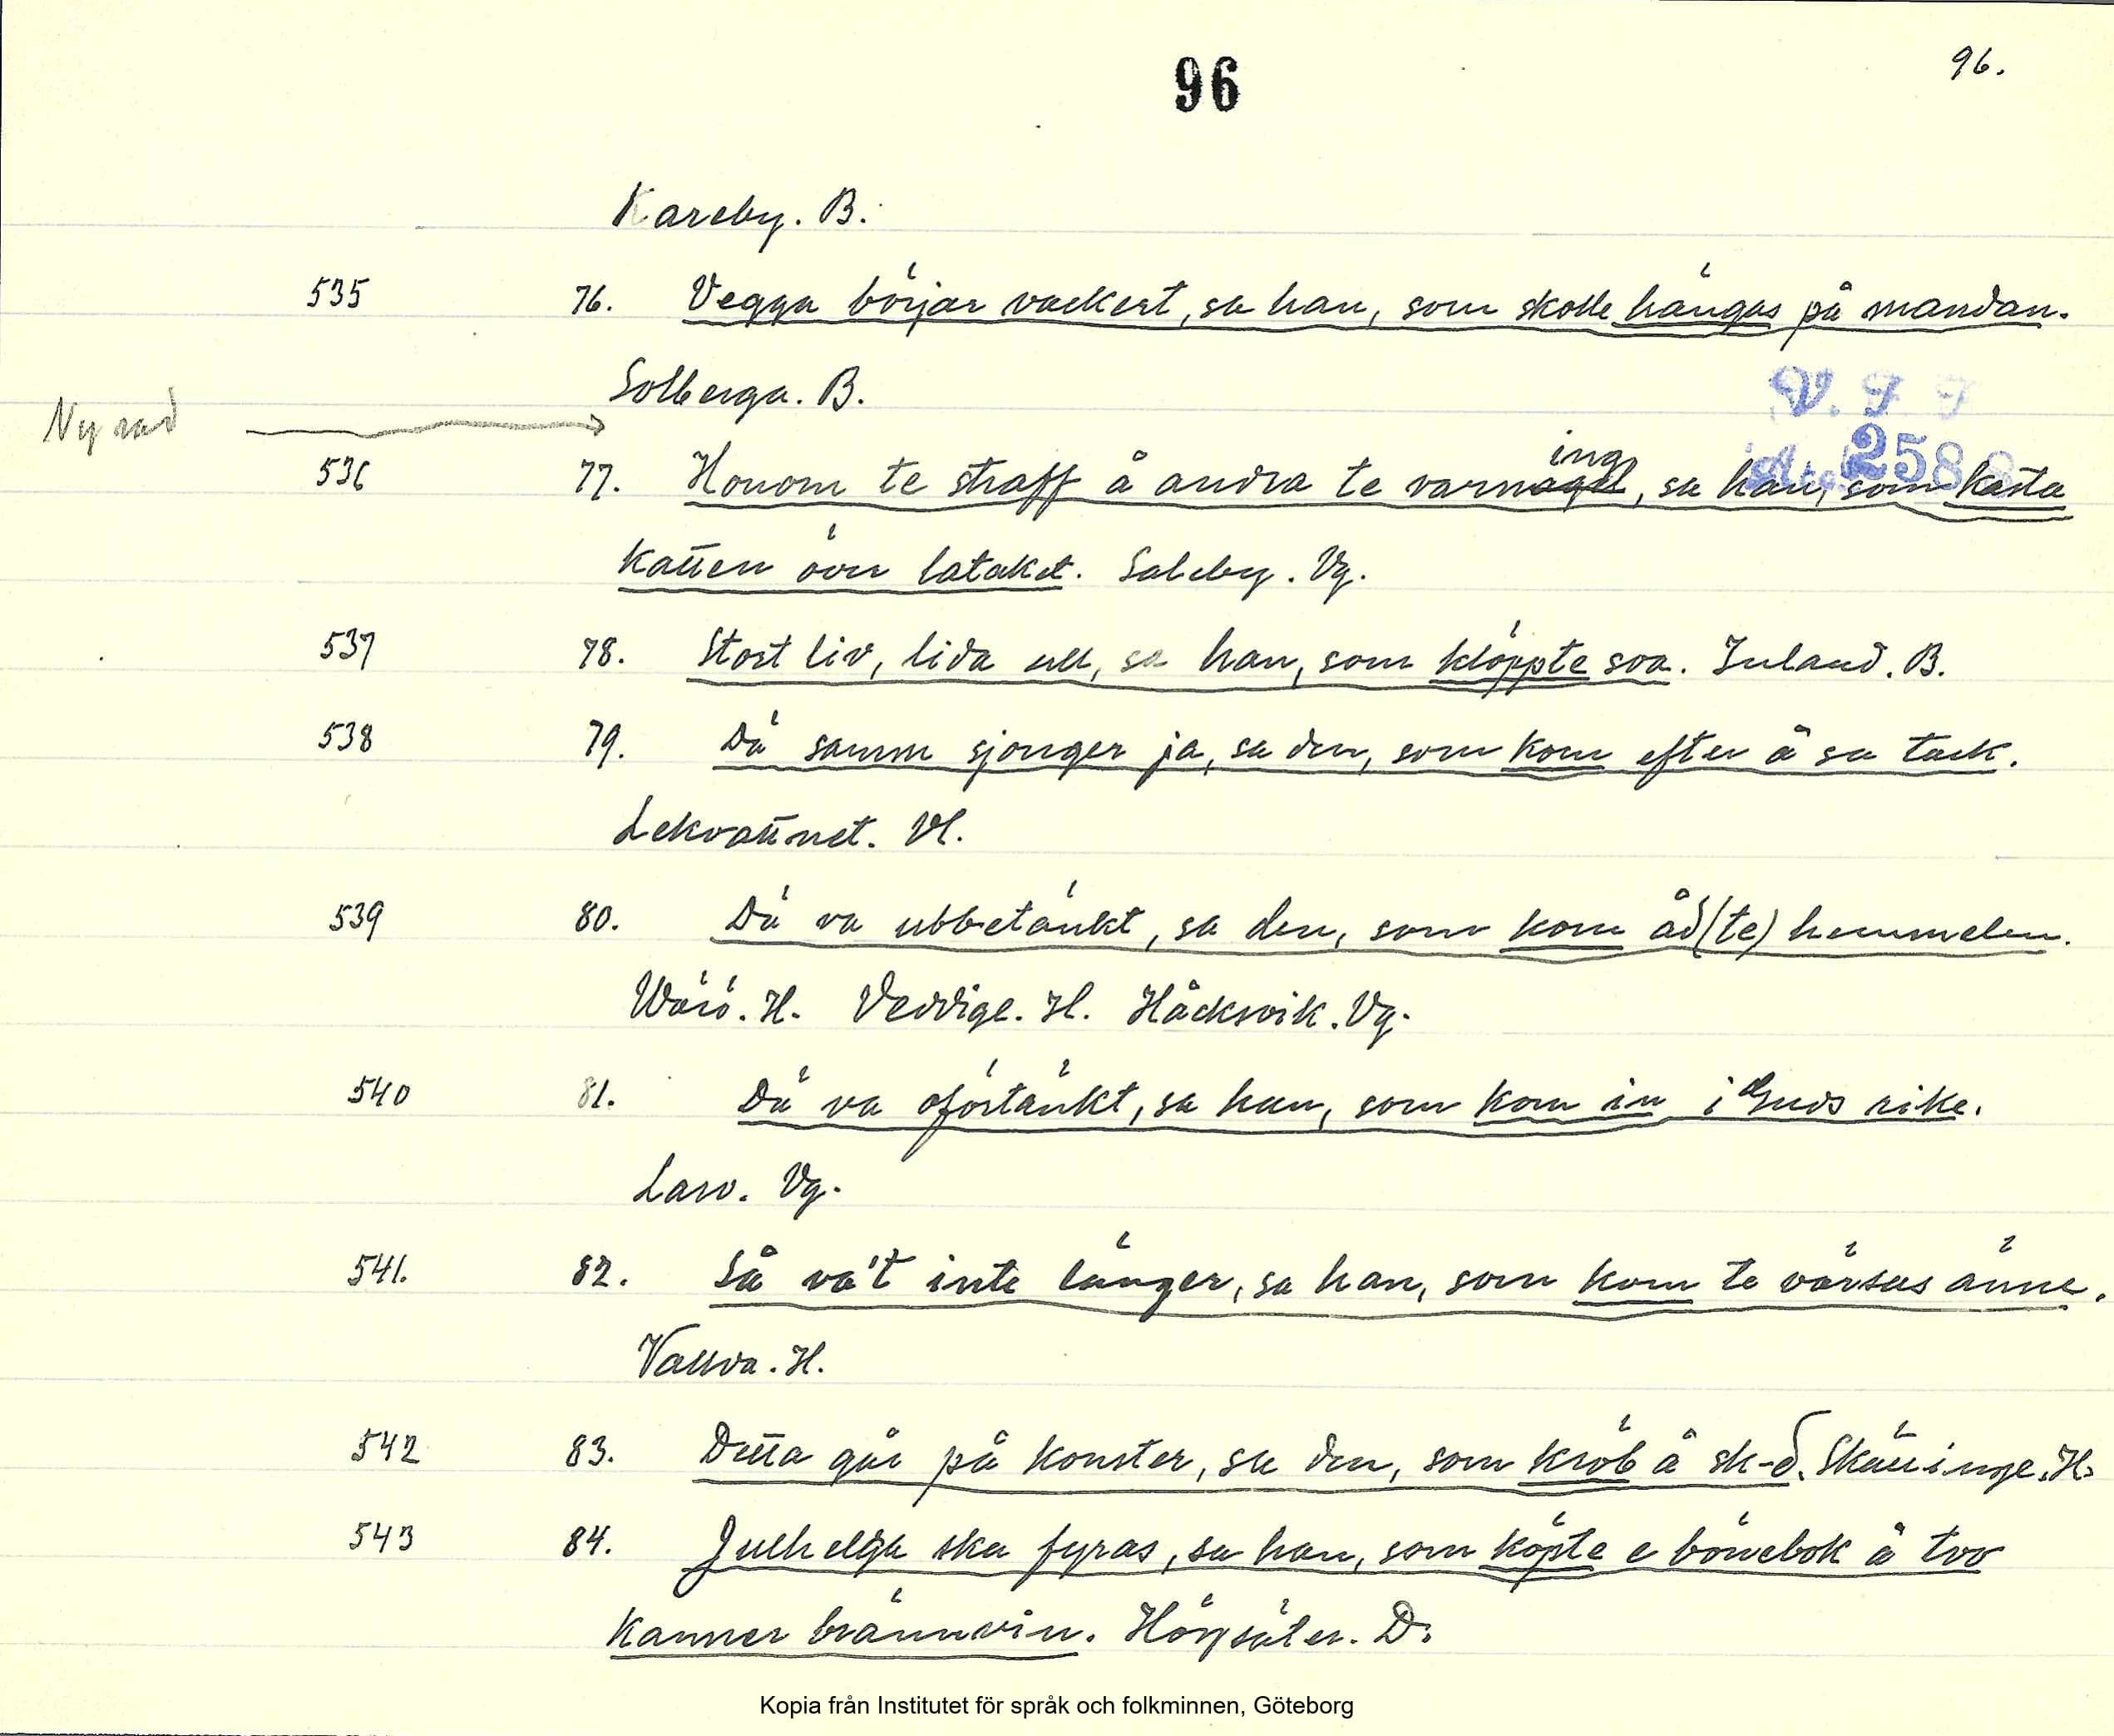 96
96.
Kareby. B.
535 76. Vegga börjar vackert, sa han, som skolle hängas på mandan.
Solberga. B.
Ny rad
V. F F
Acc. 2588
536 77. Honom te straff å andra te varnagel ing, sa han, som kasta
katten över lataket. Saleby. Vg.
537 78. Stort liv, lida ull, sa han, som klöppte soa. Inland. B.
538 79. Dä samm sjonger ja, sa den, som kom efter å sa tack.
Lekvattnet. Vl.
539 80. Dä va ubbetänkt, sa den, som kom åd (te) hemmelen.
Wärö. H. Veddige. H. Håcksvik. Vg.
540 81. Dä va oförtänkt, sa han, som kom in i Guds rike.
Larv. Vg.
541. 82. Så va't inte länger, sa han, som kom te värsens änne.
Valva. H.
542 83. Detta går på konster, sa den, som kröb å sk-d. Skällinge. H.
543 84. Julhelga ska fyras, sa han, som köpte e bönebok å tvo
kanner brännvin. Högsäter. D.
Kopia från Institutet för språk och folkminnen, Göteborg